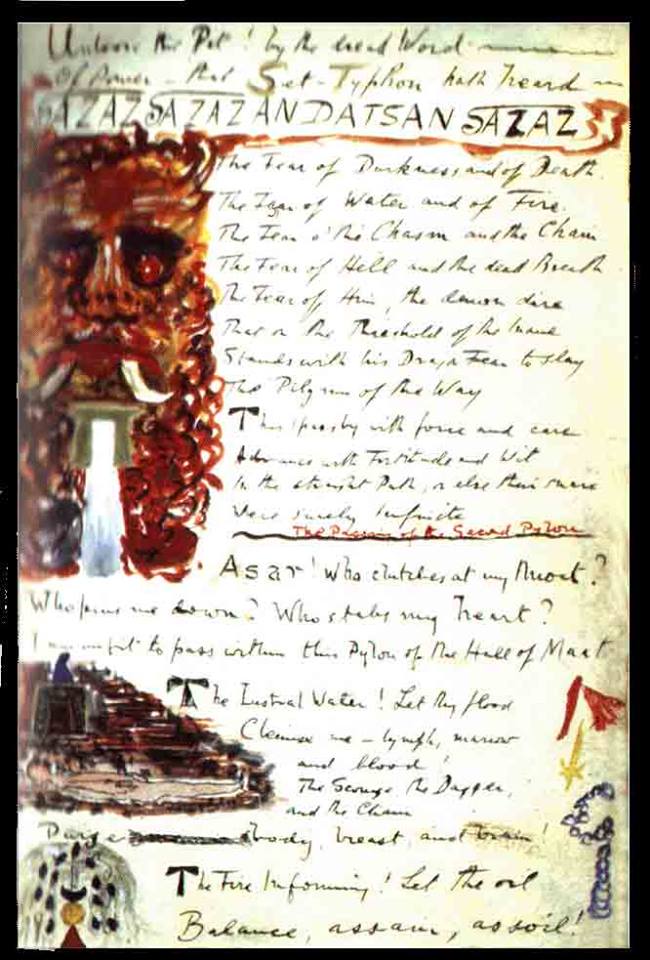 Unloose the Pit! by the dread Word
Of Power – that Set-Typhon hath heard
SAZAZ SAZAZ ANDATSAN SAZAZ
The Fear of Darkness and of Death.
The Fear of Water and of Fire.
The Fear o' the Chasm and the Chain
The Fear of Hell and the dead Breath
The Fear of Him, the demon dire
That on the Threshold of the Inane
Stands with his Dragon Fear to slay
The Pilgrim of the Way
Thus I pass by with force and care
Advance with Fortitude and Wit
In the straight Path, or else their snare
Were surely Infinite
The Passing of the Second Pylon
Asar! Who clutches at my Throat?
Who pins me down? Who stabs my Heart?
I am unfit to pass within this Pylon of the Hall of Maat
The Lustral Water! Let thy flood
Cleanse me – lymph, marrow
and blood!
The Scourge, the Dagger,
and the Chain
Purge body, breast, and brain!
The Fire Informing! Let the oil
Balance, assain, assoil!